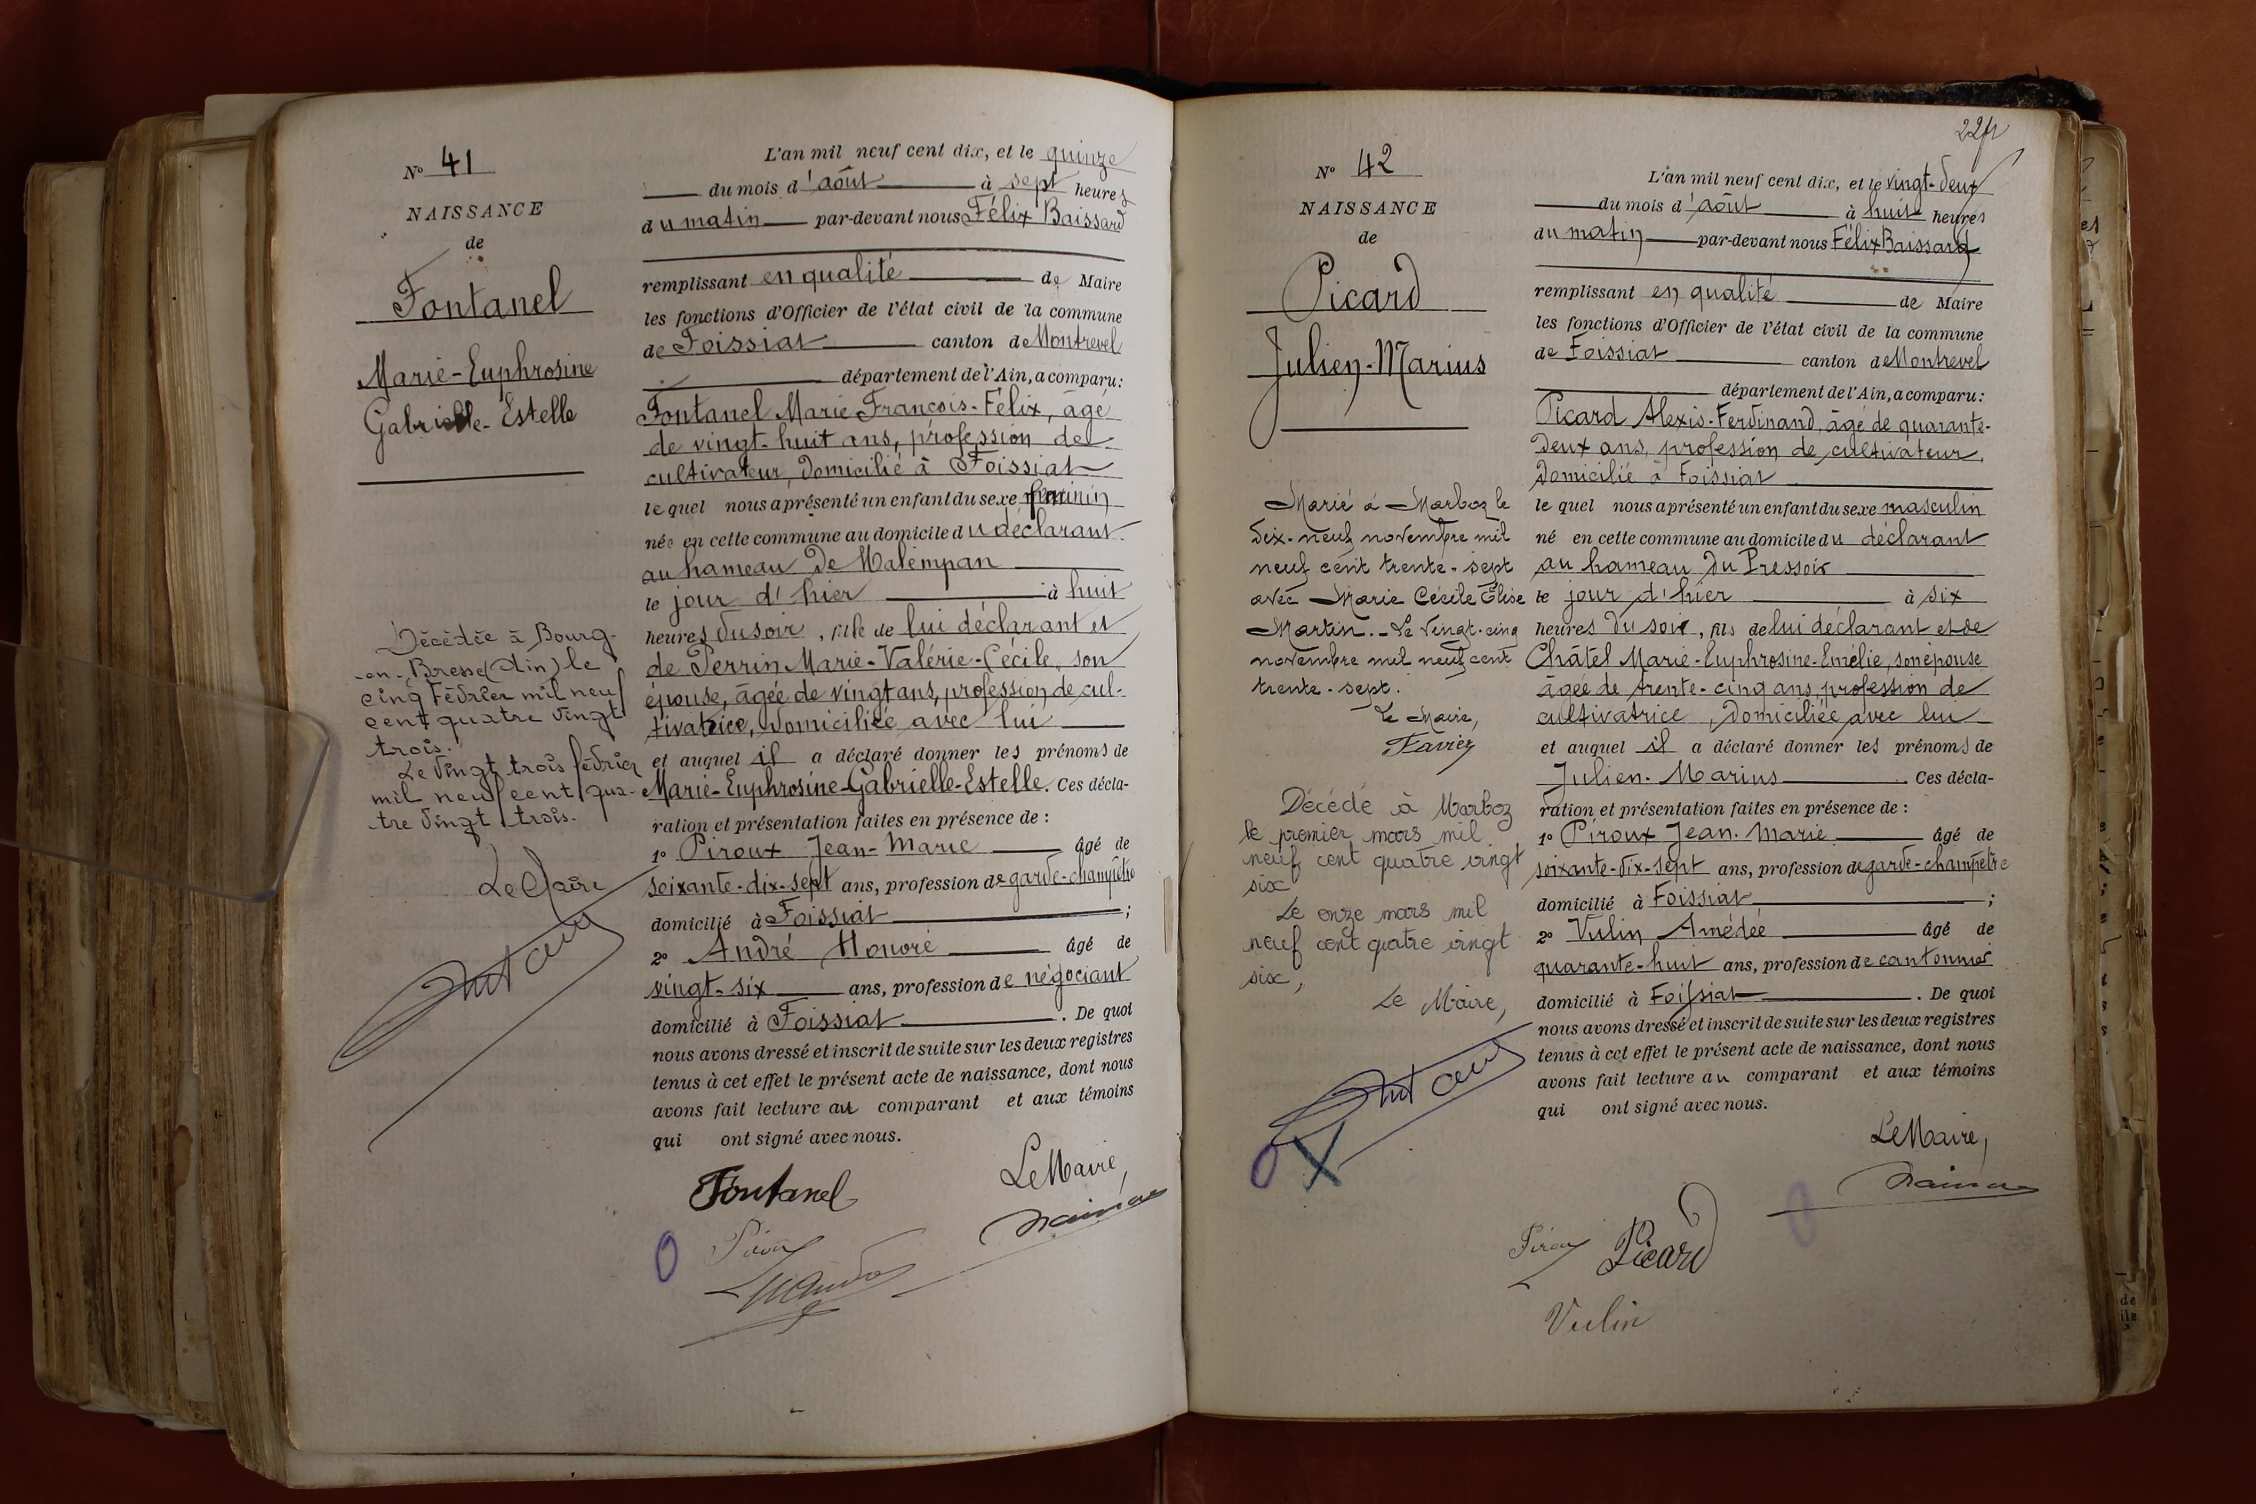 N° 41
NAISSANCE
de
Fontanel
Marie-Euphrosine
Gabrielle-Estelle
Décédée à Bourg-
-en-Bresse (Ain) le
cinq Février mil neuf
cent quatre vingt
trois.
Le Vingt trois février
mil neuf cent qua-
tre vingt trois.
Le Maire
L'an mil neuf cent dix, et le quinze
du mois d'août à sept heures
du matin par-devant nous Félix Baissard
remplissant en qualité de Maire
les fonctions d'Officier de l'état civil de la commune
de Foissiat canton de Montrevel
département de l'Ain, a comparu:
Fontanel Marie François-Félix, âgé
de vingt-huit ans, profession de
cultivateur, domicilié à Foissiat
lequel nous a présenté un enfant du sexe féminin
née en cette commune au domicile du déclarant
au hameau de Malempan
le jour d'hier à huit
heures du soir, fille de lui déclarant et
de Perrin Marie-Valérie-Cécile, son
épouse, âgée de vingt ans, profession de cul-
tivatrice, domiciliée avec lui
et auquel il a déclaré donner les prénoms de
Marie-Euphrosine-Gabrielle-Estelle. Ces décla-
ration et présentation faites en présence de :
1° Piroux Jean-Marie âgé de
soixante-dix-sept ans, profession de garde-champêtre
domicilié à Foissiat ;
2° André Honoré âgé de
vingt-six ans, profession de négociant
domicilié à Foissiat . De quoi
nous avons dressé et inscrit de suite sur les deux registres
tenus à cet effet le présent acte de naissance, dont nous
avons fait lecture au comparant et aux témoins
qui ont signé avec nous.
Fontanel
Le Maire,
Piroux
22
N° 42
NAISSANCE
de
Picard
Julien-Marius
Marié à Marboz le
dix-neuf novembre mil
neuf cent trente-sept
avec Marie Cécile Élise
Martin. - Le vingt-cinq
novembre mil neuf cent
trente-sept.
Le Maire,
Favier
Décédé à Marboz
le premier mars mil
neuf cent quatre vingt
six
Le onze mars mil
neuf cent quatre vingt
six,
Le Maire,
L'an mil neuf cent dix, et le vingt-deux
du mois d'août à huit heures
du matin par-devant nous Félix Baissard
remplissant en qualité de Maire
les fonctions d'Officier de l'état civil de la commune
de Foissiat canton de Montrevel
département de l'Ain, a comparu:
Picard Alexis-Ferdinand, âgé de quarante-
deux ans, profession de cultivateur,
domicilié à Foissiat
lequel nous a présenté un enfant du sexe masculin
né en cette commune au domicile du déclarant
au hameau du Pressoir
le jour d'hier à six
heures du soir, fils de lui déclarant et de
Châtel Marie-Euphrosine-Emélie, son épouse
âgée de trente-cinq ans, profession de
cultivatrice, domiciliée avec lui
et auquel il a déclaré donner les prénoms de
Julien-Marius . Ces décla-
ration et présentation faites en présence de :
1° Piroux Jean-Marie âgé de
soixante-dix-sept ans, profession de garde-champêtre
domicilié à Foissiat ;
2° Vulin Amédée âgé de
quarante-huit ans, profession de cantonnier
domicilié à Foissiat . De quoi
nous avons dressé et inscrit de suite sur les deux registres
tenus à cet effet le présent acte de naissance, dont nous
avons fait lecture au comparant et aux témoins
qui ont signé avec nous.
Le Maire,
Piroux Picard
Vulin